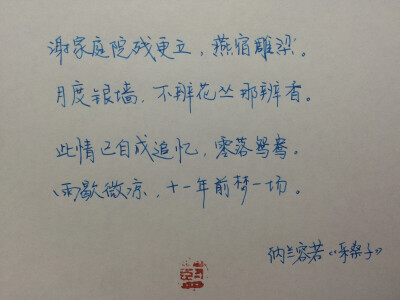 谢家庭院残更立，燕宿雕梁。
月度银墙，不辨花丛那辨香。
此情已自成追忆，零落鸳鸯。
雨歇微凉，十一年前梦一场。
纳兰容若《采桑子》